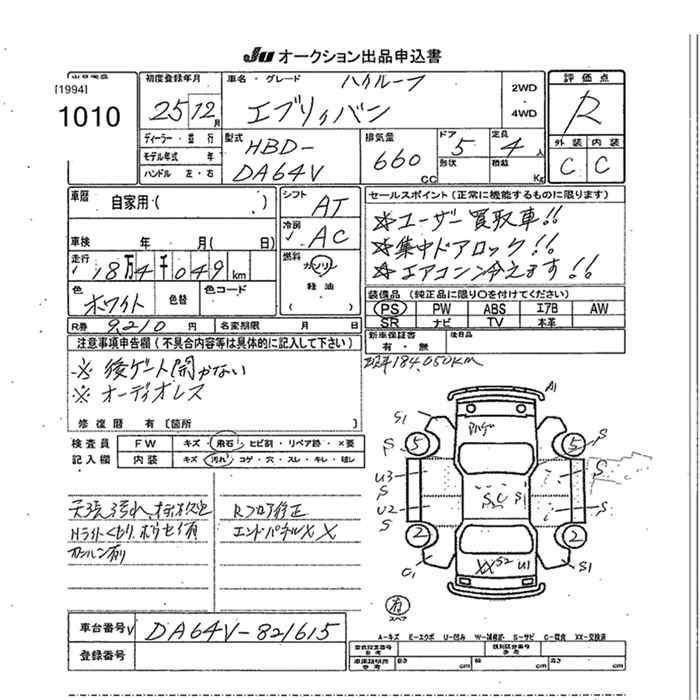 JU オークション出品申込書
[1994]
1010
初度登録年月
25 12月
車名・グレード
ハイルーフ
エブリィバン
2WD
・
4WD
評価点
R
外装 内装
C C
ディーラー・並行
モデル年式 年
ハンドル 左・右
型式
HBD-
DA64V
排気量
660
CC
ドア
5
形状
定員
4人
積載
Kg
車歴
自家用・( )
シフト
AT
車検 年 月( 日)
冷房
AC
走行
18万4千049km
燃料
ガソリン
軽油
( )
色
ホワイト
色替
色コード
R券 9,210円 名変期限 月 日
セールスポイント(正常に機能するものに限ります)
☆ユーザー買取車!!
☆集中ドアロック!!
☆エアコン冷えます!!
装備品(純正品に限り○を付けてください)
PS PW ABS エアB AW
SR ナビ TV 本革
新車保証書
有・無
後日品
184,050km
注意事項申告欄(不具合内容等は具体的に記入して下さい)
※後ゲート開かない
※オーディオレス
修復歴 有〔箇所 〕
検査員
記入欄
FW キズ・飛石・ヒビ割・リペア跡・×要
内装 キズ・汚れ・コゲ・穴・スレ・キレ・破レ
Rフロア修正
エンドパネルXX
A1
S1
S
5
5
S
U3
S
S
U2
S
S
S C S1
2
2
C1
XX S2 U1
S1
有
スペア
車台番号 DA64V-821615
登録番号
A-キズ E-エクボ U-凹み W-補修跡 S-サビ C-腐食 XX-交換済
型式指定番号
類別区分番号
長さ cm 幅 cm 高さ cm